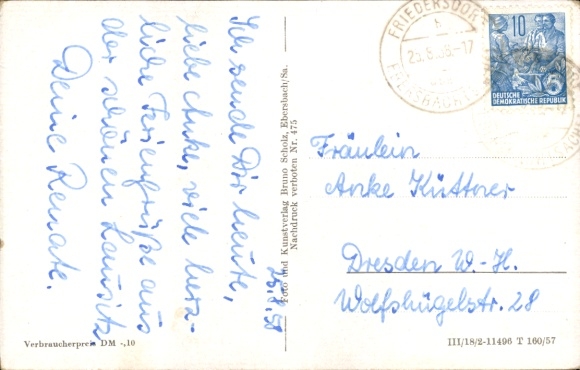 Ich sende Dir heute,
liebe Anke, viele herz-
liche Feriengrüße aus
der schönen Lausitz
Deine Renate.
25.8.58
Foto und Kunstverlag Bruno Scholz, Ebersbach/Sa.
Nachdruck verboten Nr. 475
Verbraucherpreis DM -,10
FRIEDERSDORF
25.8.58.-17
10
5
DEUTSCHE
DEMOKRATISCHE REPUBLIK
Fräulein
Anke Küttner
Dresden W.-H.
Wolfshügelstr. 28
III/18/2-11496 T 160/57